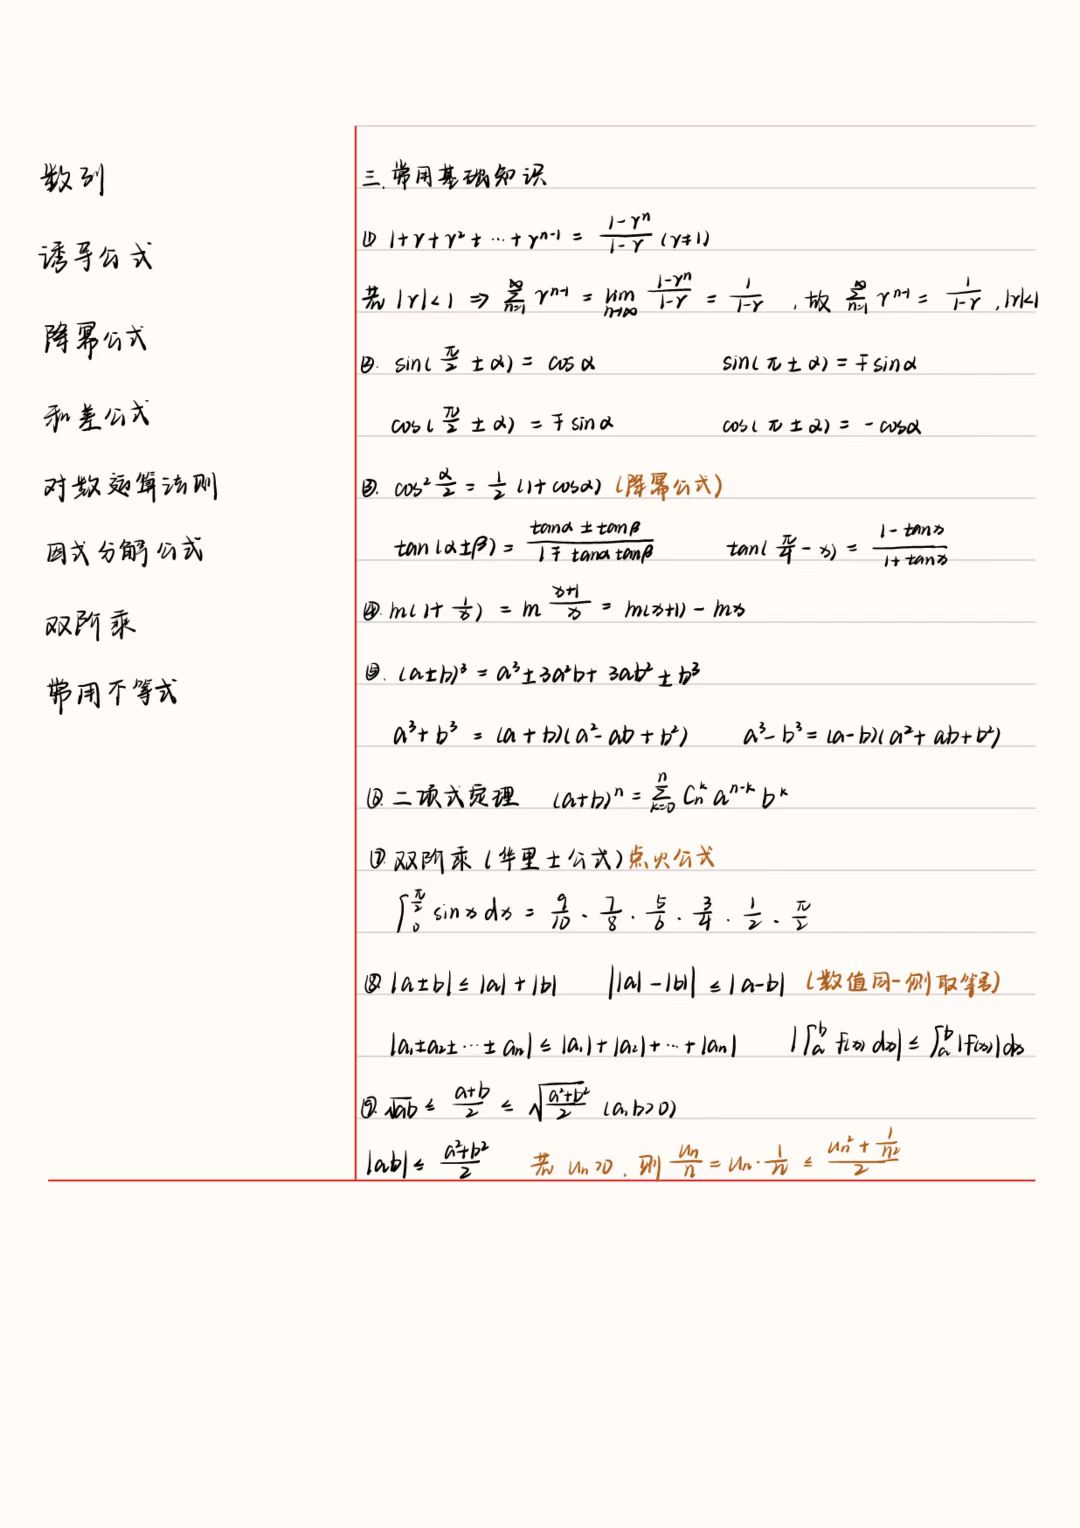 数列
诱导公式
降幂公式
和差公式
对数运算法则
因式分解公式
双阶乘
常用不等式
三、常用基础知识
① 1+r+r²+…+rⁿ⁻¹ = (1-rⁿ)/(1-r) (r≠1)
若 |r|<1 ⇒ ∑_{n=1}^{∞} rⁿ⁻¹ = lim_{n→∞} (1-rⁿ)/(1-r) = 1/(1-r) ,故 ∑_{n=1}^{∞} rⁿ⁻¹ = 1/(1-r) , |r|<1
②. sin(π/2 ± α) = cosα sin(π ± α) = ∓sinα
cos(π/2 ± α) = ∓sinα cos(π ± α) = -cosα
③. cos² α/2 = 1/2 (1+cosα) (降幂公式)
tan(α±β) = (tanα ± tanβ)/(1∓tanαtanβ) tan(π/4 - x) = (1-tanx)/(1+tanx)
④. ln(1+1/x) = ln (x+1)/x = ln(x+1) - lnx
⑤. (a±b)³ = a³±3a²b+3ab²±b³
a³+b³ = (a+b)(a²-ab+b²) a³-b³ = (a-b)(a²+ab+b²)
⑥. 二项式定理 (a+b)ⁿ = ∑_{k=0}^{n} C_n^k a^{n-k} b^k
⑦ 双阶乘(华里士公式)点火公式
∫_0^{π/2} sinx dx = 9/10 · 7/8 · 5/6 · 3/4 · 1/2 · π/2
⑧ |a±b| ≤ |a|+|b| ||a|-|b|| ≤ |a-b| (数值同一侧取等号)
|a₁±a₂±…±aₙ| ≤ |a₁|+|a₂|+…+|aₙ| |∫_a^b f(x) dx| ≤ ∫_a^b |f(x)|dx
⑨. √ab ≤ (a+b)/2 ≤ √((a²+b²)/2) (a,b>0)
|ab| ≤ (a²+b²)/2 若 uₙ>0, 则 uₙ/n = uₙ·1/n ≤ (uₙ²+1/n²)/2